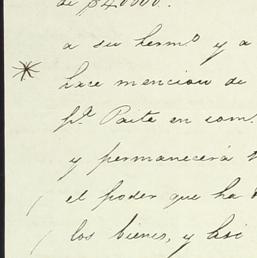 de $40000.
a su herm.º y a
hace mencion de
p.ª Paita en com.
y permanecerá
el poder que ha
los bienes, y así